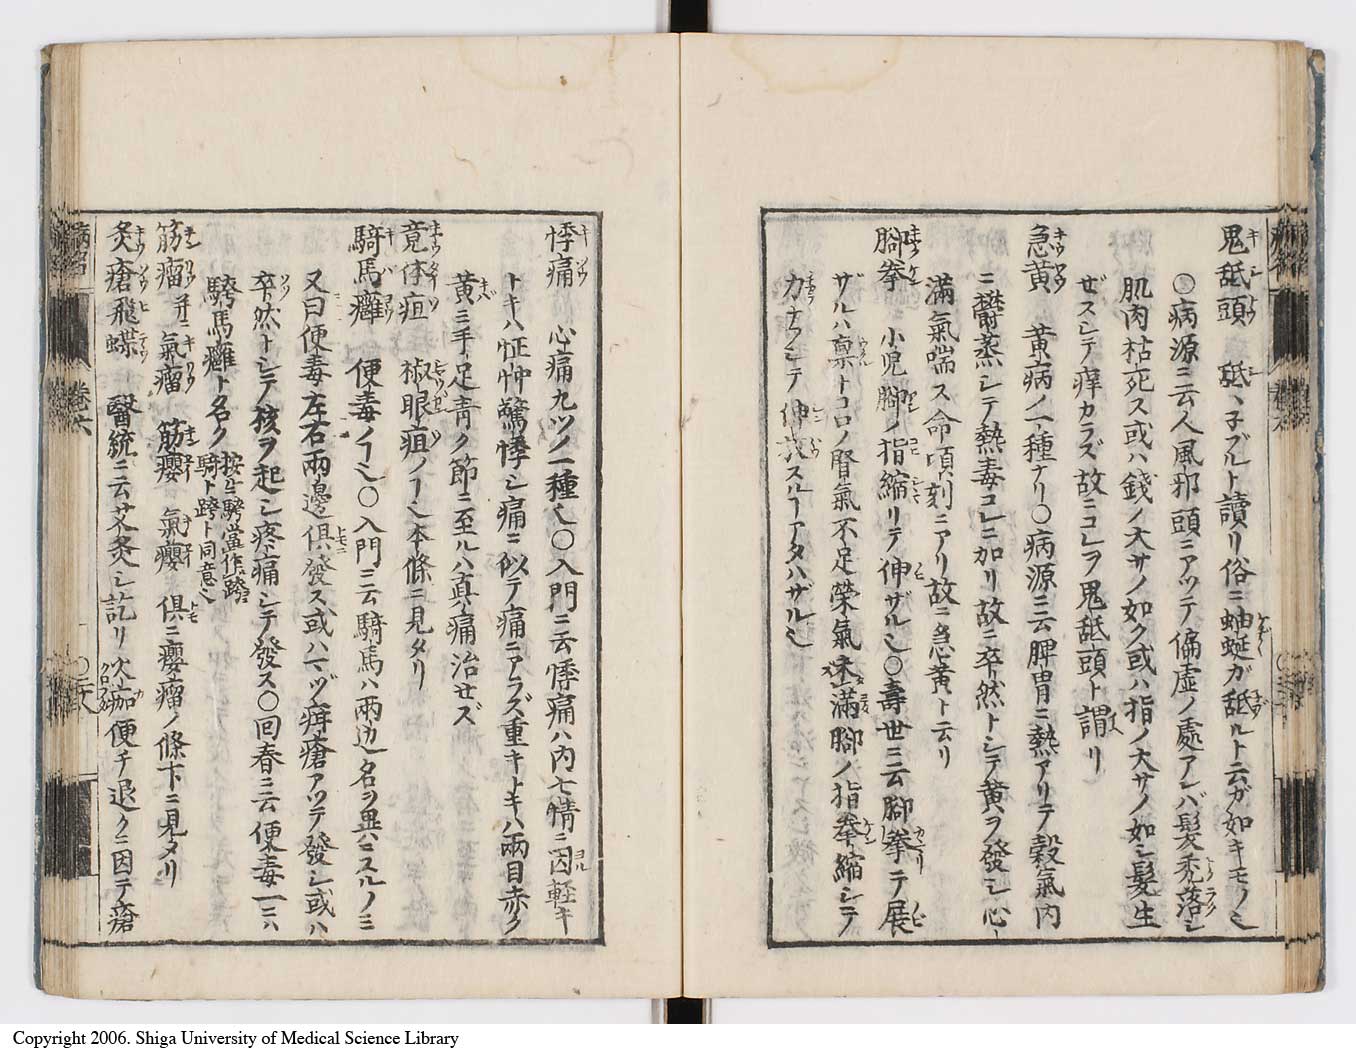 鬼舐頭 舐ハ子ブルト讀リ俗ニ蚰蜒ガ舐ルト云ガ如キモノ也
○病源ニ云人風邪頭ニアツテ偏虛ノ處アレバ髮禿落シ
肌肉枯死ス或ハ錢ノ大サノ如ク或ハ指ノ大サノ如シ髮生
ゼスシテ痒カラズ故ニコレヲ鬼舐頭ト謂リ
急黄 黄病ノ一種ナリ○病源ニ云脾胃ニ熱アリテ穀氣内
ニ鬱蒸シテ熱毒コレニ加リ故ニ卒然トシテ黄ヲ發シ心
滿氣喘ス命頃刻ニアリ故ニ急黄ト云リ
脚拳 小兒脚ノ指縮リテ伸ザル也○壽世ニ云脚拳テ展
ザルハ稟トコロノ腎氣不足榮氣未滿脚ノ指拳縮シテ
力ナフシテ伸 スルーアタハザル也
悸痛 心痛九ツノ一種也○入門ニ云悸痛ハ内七情ニ因輕キ
トキハ怔忡驚悸シ痛ニ似テ痛ニアラズ重キトキハ兩目赤ク
黄ミ手足青ク節ニ至ルハ真痛治セズ
竟体疽 椒眼疽ノー也本條ニ見タリ
騎馬癰 便毒ノー也○入門ニ云騎馬ハ兩边名ヲ異ニスルノミ
又曰便毒左右兩邊俱發ス或ハマヅ疳瘡アツテ發シ或ハ
卒然トシテ核ヲ起シ疼痛シテ發ス○回春ニ云便毒一ニハ
騎馬癰ト名ク 按ニ騎當作跨
騎ト跨ト同意也
筋瘤并ニ氣瘤 筋癭 氣癭 俱ニ癭瘤ノ條下ニ見タリ
灸瘡飛蝶 醫統ニ云艾灸シ訖リ火痂便チ退クニ因テ瘡
病名 卷六
Copyright 2006. Shiga University of Medical Science Library